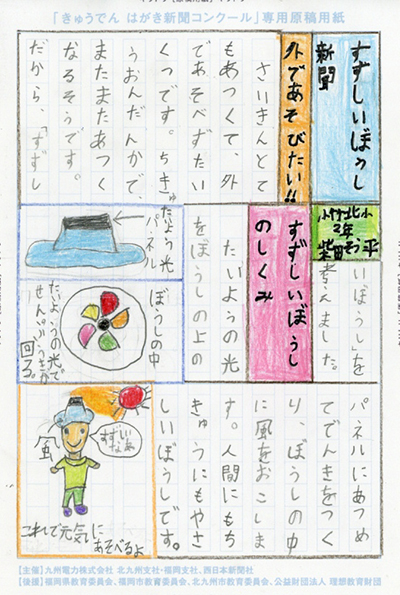 「きゅうでん はがき新聞コンクール」専用原稿用紙
すずしいぼうし
新聞
小竹北小
2年
柴田そう平
外であそびたい!!
さいきんとて
もあつくて、外
であそべずたい
くつです。ちきゅ
うおんだんかで、
またまたあつく
なるそうです。
だから、「すずし
いぼうし」を
考えました。
すずしいぼうし
のしくみ
たいようの光
をぼうしの上の
パネルにあつめ
てでんきをつく
り、ぼうしの中
に風をおこしま
す。人間にもち
きゅうにもやさ
しいぼうしです。
たいよう光
パネル
ぼうしの中
たいようの光で
せんぷうきが
回る。
すずしい
なあ
風
これで元気に
あそべるよ
【主催】九州電力株式会社 北九州支社・福岡支社、西日本新聞社
【後援】福岡県教育委員会、福岡市教育委員会、北九州市教育委員会、公益財団法人 理想教育財団